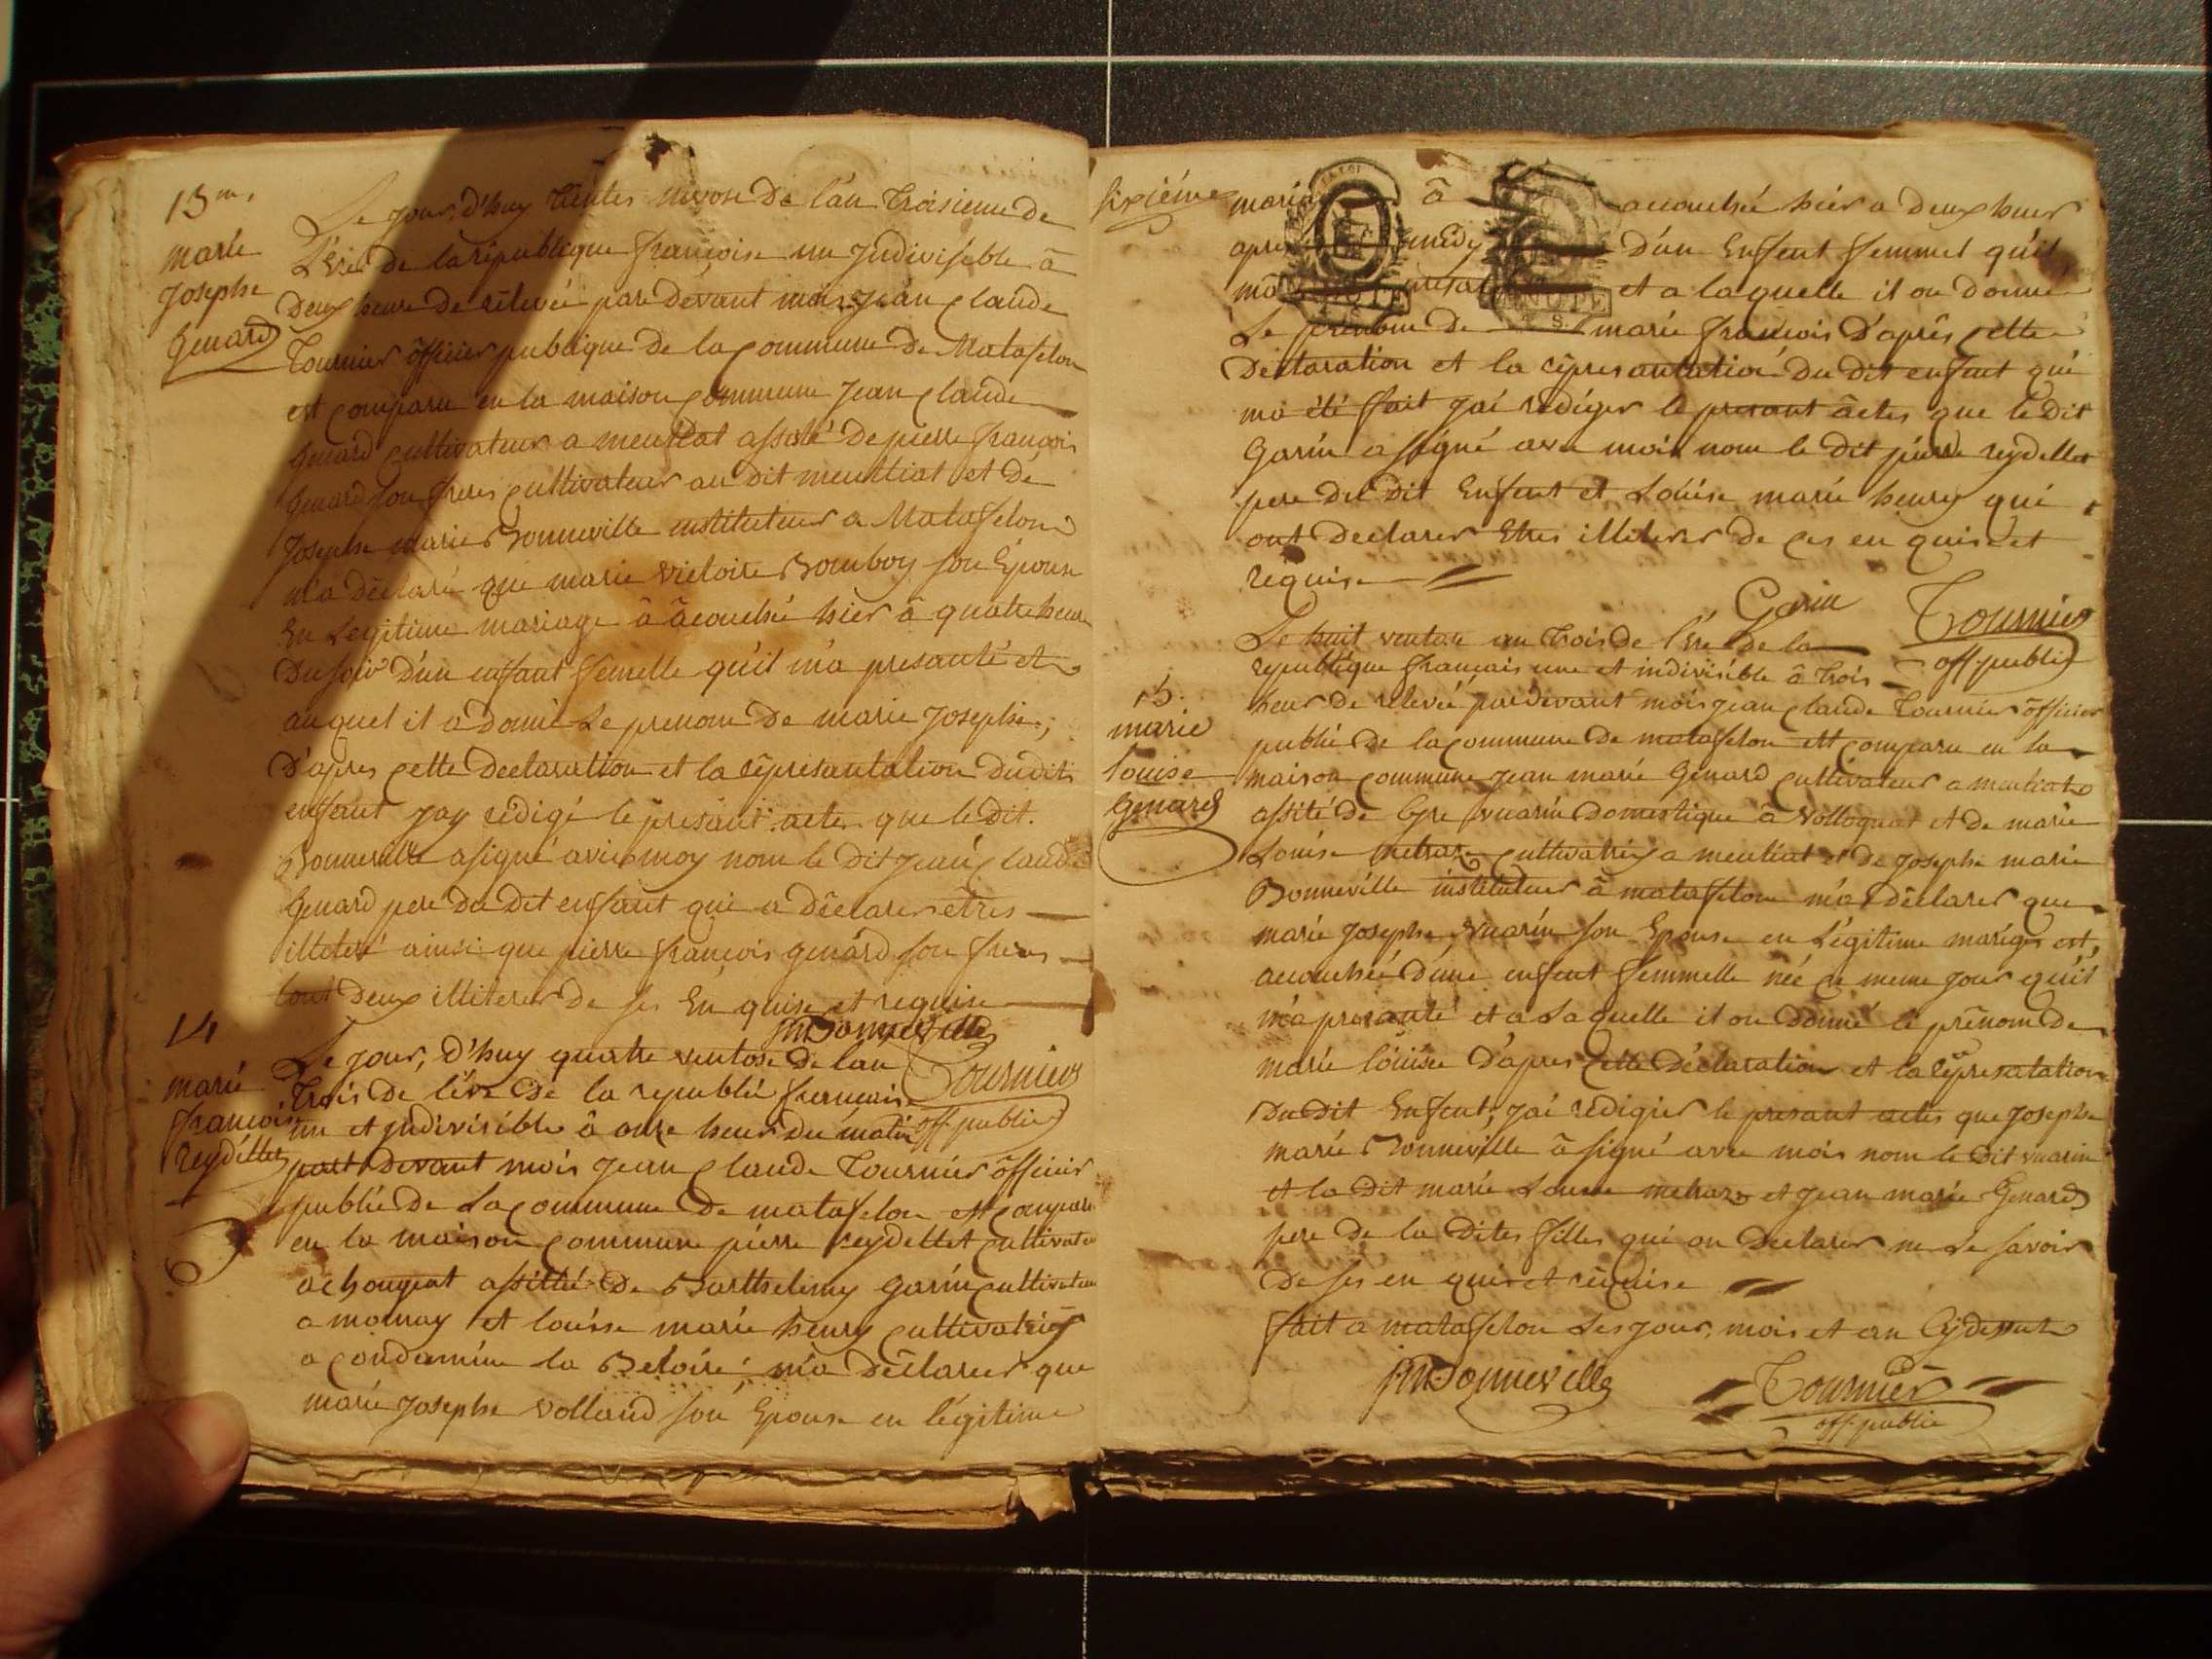 13me
marie
Josephe
Genard
Le jour d'huy trentes nivose De l'an troisieme de
L'Ere de la republique françoise une Jndivisible â
Deux heure de rêlevée pare devant mois Jean Claude
Tournier ôfficier publique de la Commune De Matafelon
est comparu en la maison Commune Jean Claude
Genard Cultivateur a meuthiat assité De pierre françois
Genard son freres Cultivateur au dit meuthiat et De
Josephe marie Bonneville instituteur a Matafelon
m'a dêclaré que marie victoire Bomboy son Epouse
En Legitime mariage â âcouchée hier â quatre heure
Du soir D'un enfant femelle qu'il m'a presanté et
auquel il a donné Le prenom De marie Josephe;
D'apres Cette Declaration et la rêpresantation Du dit
enfant Jay rêdigé le présant actes que le dit
Bonneville a signé avec moy nom le Dit Jean Claude
Genard pere Du Dit enfant qui a Dêclarer etres
illeteré ainsi que pierre françois genard son freres
tout Deux illiterer De ses En quise et requise
JMBonneville
Tournier
off. public
14
marie
françoise
reydellet
Le jour, d'huy quatre ventose De lan
Trois de l'ère De la republic francaise
un et jndivisible â onze heur Du matin
part Devant mois Jean Claude Tournier ôfficier
public De La Commune De matafelon est Comparu
en la maison Commune pierre reydellet Cultivateur
a chougeat assitté De Barthelemy Garin Cultivateur
a mornay et louisse marie henry Cultivatrice
a Condamine la Beloire; m'a Dêclarer que
marie Josephe volland son Epouse en légitime
sixiéme
mariage â acouchée hier a Deux heur
apres D'un Enfent femmel qu'il
ma presanté et a laquelle il on donné
Le prenom de marie francois D'aprês Cette
Declaration et la rêpresantation Du Dit enfent qui
ma été fait J'ai rêdiger le presant âctes que le Dit
Garin a signé avec mois nom le Dit pierre reydellet
pere du Dit Enfent et Loüise marie henry qui
ont Declarer Etres illiterer de Ces en quise et
requise
Garin
Tournier
off. public
15.
marie
louise
Genard
Le huit ventose an trois de l'Ere de la
republique français une et indivisible â trois
heur De relevée par Devant mois Jean Claude Tournier ôfficier
public De la Commune De matafelon est Comparu en la
maison Commune Jean marie Genard Cultivateur a meuthiat
assité De Cyre vuarin Domestique â vollognat et De marie
Louise metraz Cultivatrice a meuthiat et de Josephe marie
Bonneville instituteur â matafelon m'a Dêclarer que
marie Josephe vuarin son Epouse en Légitime mariges est
acouchée D'une enfent femmelle née ce meme jour qu'il
m'a presanté et a Laquelle il on Donné le prênom De
marie loüise D'apres Cette Déclaration et la rêpresatation
Du Dit Enfent, J'ai rêdigier le presant actes que Josephe
marie Bonneville â signé avec mois nom le Dit vuarin
et la Dit marie Louise metraz et Jean marie Genard
pere De la Dites filles qui on Declarer ne Le savoir
De ses en quis et rêquise
fait a matafelon Les jour, mois et an Cydessut
JMBonneville
Tournier
off. public